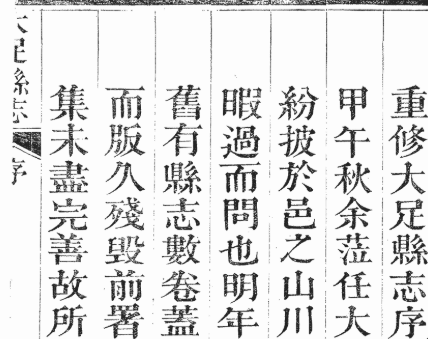 重修大足縣志序
甲午秋余蒞任大
紛披於邑之山川
暇過而問也明年
舊有縣志數卷蓋
而版久殘毀前署
集未盡完善故所
大足縣志
序